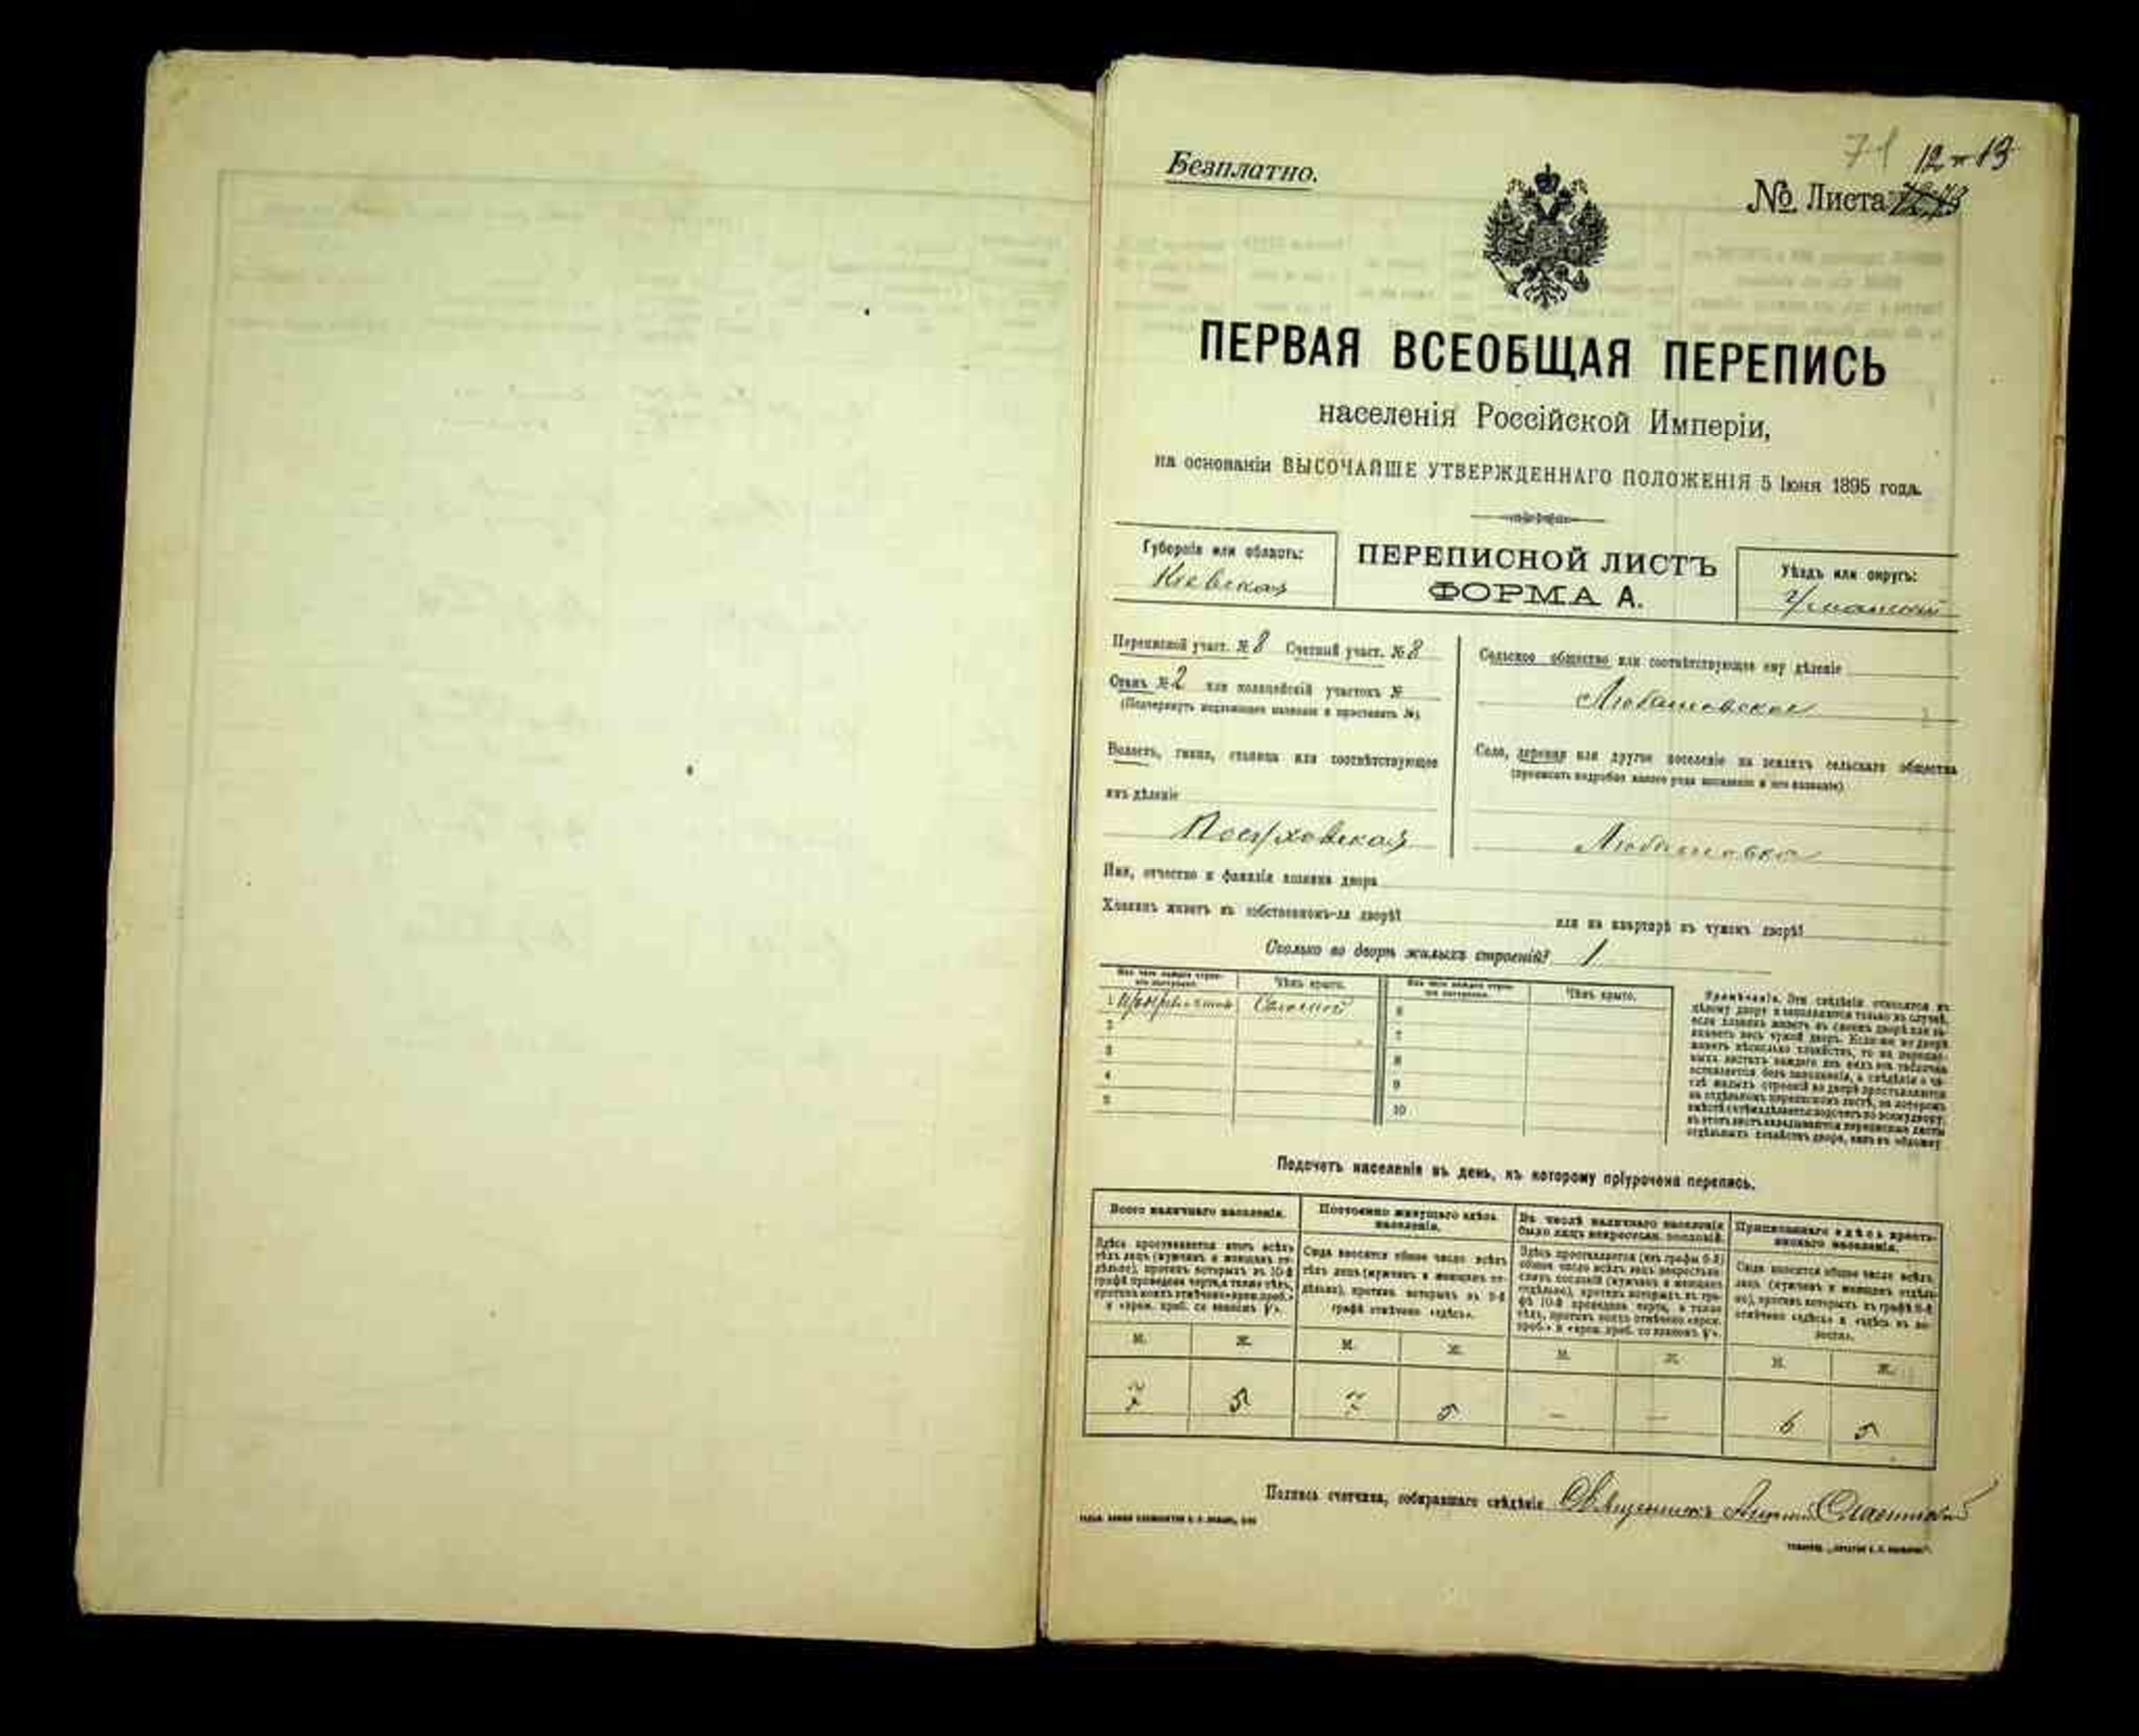 71 12 и 13
Безплатно.
№ Листа
ПЕРВАЯ ВСЕОБЩАЯ ПЕРЕПИСЬ
населенія Россійской Имперіи,
на основаніи ВЫСОЧАЙШЕ УТВЕРЖДЕННАГО ПОЛОЖЕНІЯ 5 Іюня 1895 года.
Губернія или область:
Кіевская
ПЕРЕПИСНОЙ ЛИСТЪ
ФОРМА А.
Уѣздъ или округъ:
Уманскій
Переписной участ. № 8 Счетный участ. № 8
Станъ № 2 или полицейскій участокъ №
(Подчеркнуть надлежащее названіе и проставить №)
Волость, гмина, станица или соотвѣтствующее
имъ дѣленіе
Сельское общество или соотвѣтствующее ему дѣленіе
Любашовское
Село, деревня или другое поселеніе на земляхъ сельскаго общества
(прописать подробно какого рода поселеніе и его названіе)
Любашовка
Имя, отчество и фамилія хозяина двора
Хозяинъ живетъ въ собственномъ-ли дворѣ? или на квартирѣ въ чужомъ дворѣ?
Сколько во дворѣ жилыхъ строеній? 1
Изъ чего каждое строеніе построено. Чѣмъ крыто. Изъ чего каждое строеніе построено. Чѣмъ крыто.
1 Соломой 6
2 7
3 8
4 9
5 10
Примѣчаніе. Эти свѣдѣнія относятся къ
цѣлому двору и заполняются только въ случаѣ,
если хозяинъ живетъ въ своемъ дворѣ или занимаетъ весь чужой дворъ. Если-же во дворѣ
живетъ нѣсколько хозяйствъ, то на переписныхъ листахъ каждаго изъ нихъ эта табличка
оставляется безъ заполненія, а свѣдѣнія о числѣ жилыхъ строеній во дворѣ проставляются
на отдѣльномъ переписномъ листѣ, на которомъ
вмѣстѣ съ тѣмъ дѣлается подсчетъ по всему двору;
въ этотъ листъ вкладываются переписные листы
отдѣльныхъ хозяйствъ двора, какъ въ обложку.
Подсчетъ населенія въ день, къ которому пріурочена перепись.
Всего наличнаго населенія.
Здѣсь проставляется итогъ всѣхъ
тѣхъ лицъ (мужчинъ и женщинъ отдѣльно), противъ которыхъ въ 10-й
графѣ проведена черта, а также тѣхъ,
противъ коихъ отмѣчено «врем. преб.»
и «врем. преб. со знакомъ V».
Постоянно живущаго здѣсь населенія.
Сюда вносится общее число всѣхъ
тѣхъ лицъ (мужчинъ и женщинъ отдѣльно), противъ которыхъ въ 9-й
графѣ отмѣчено «здѣсь».
Въ числѣ наличнаго населенія
было лицъ некрестьян. сословій.
Здѣсь проставляется (изъ графы 6-й)
общее число всѣхъ лицъ некрестьянскихъ сословій (мужчинъ и женщинъ
отдѣльно), противъ которыхъ въ графѣ 10-й проведена черта, а также
тѣхъ, противъ коихъ отмѣчено «врем.
преб.» и «врем. преб. со знакомъ V».
Приписаннаго здѣсь крестьянскаго населенія.
Сюда вносится общее число всѣхъ
лицъ (мужчинъ и женщинъ отдѣльно), противъ которыхъ въ графѣ 8-й
отмѣчено «здѣсь» и «здѣсь въ волости».
М. Ж. М. Ж. М. Ж. М. Ж.
7 5 7 5 — — 6 5
Подпись счетчика, собиравшаго свѣдѣнія Священникъ